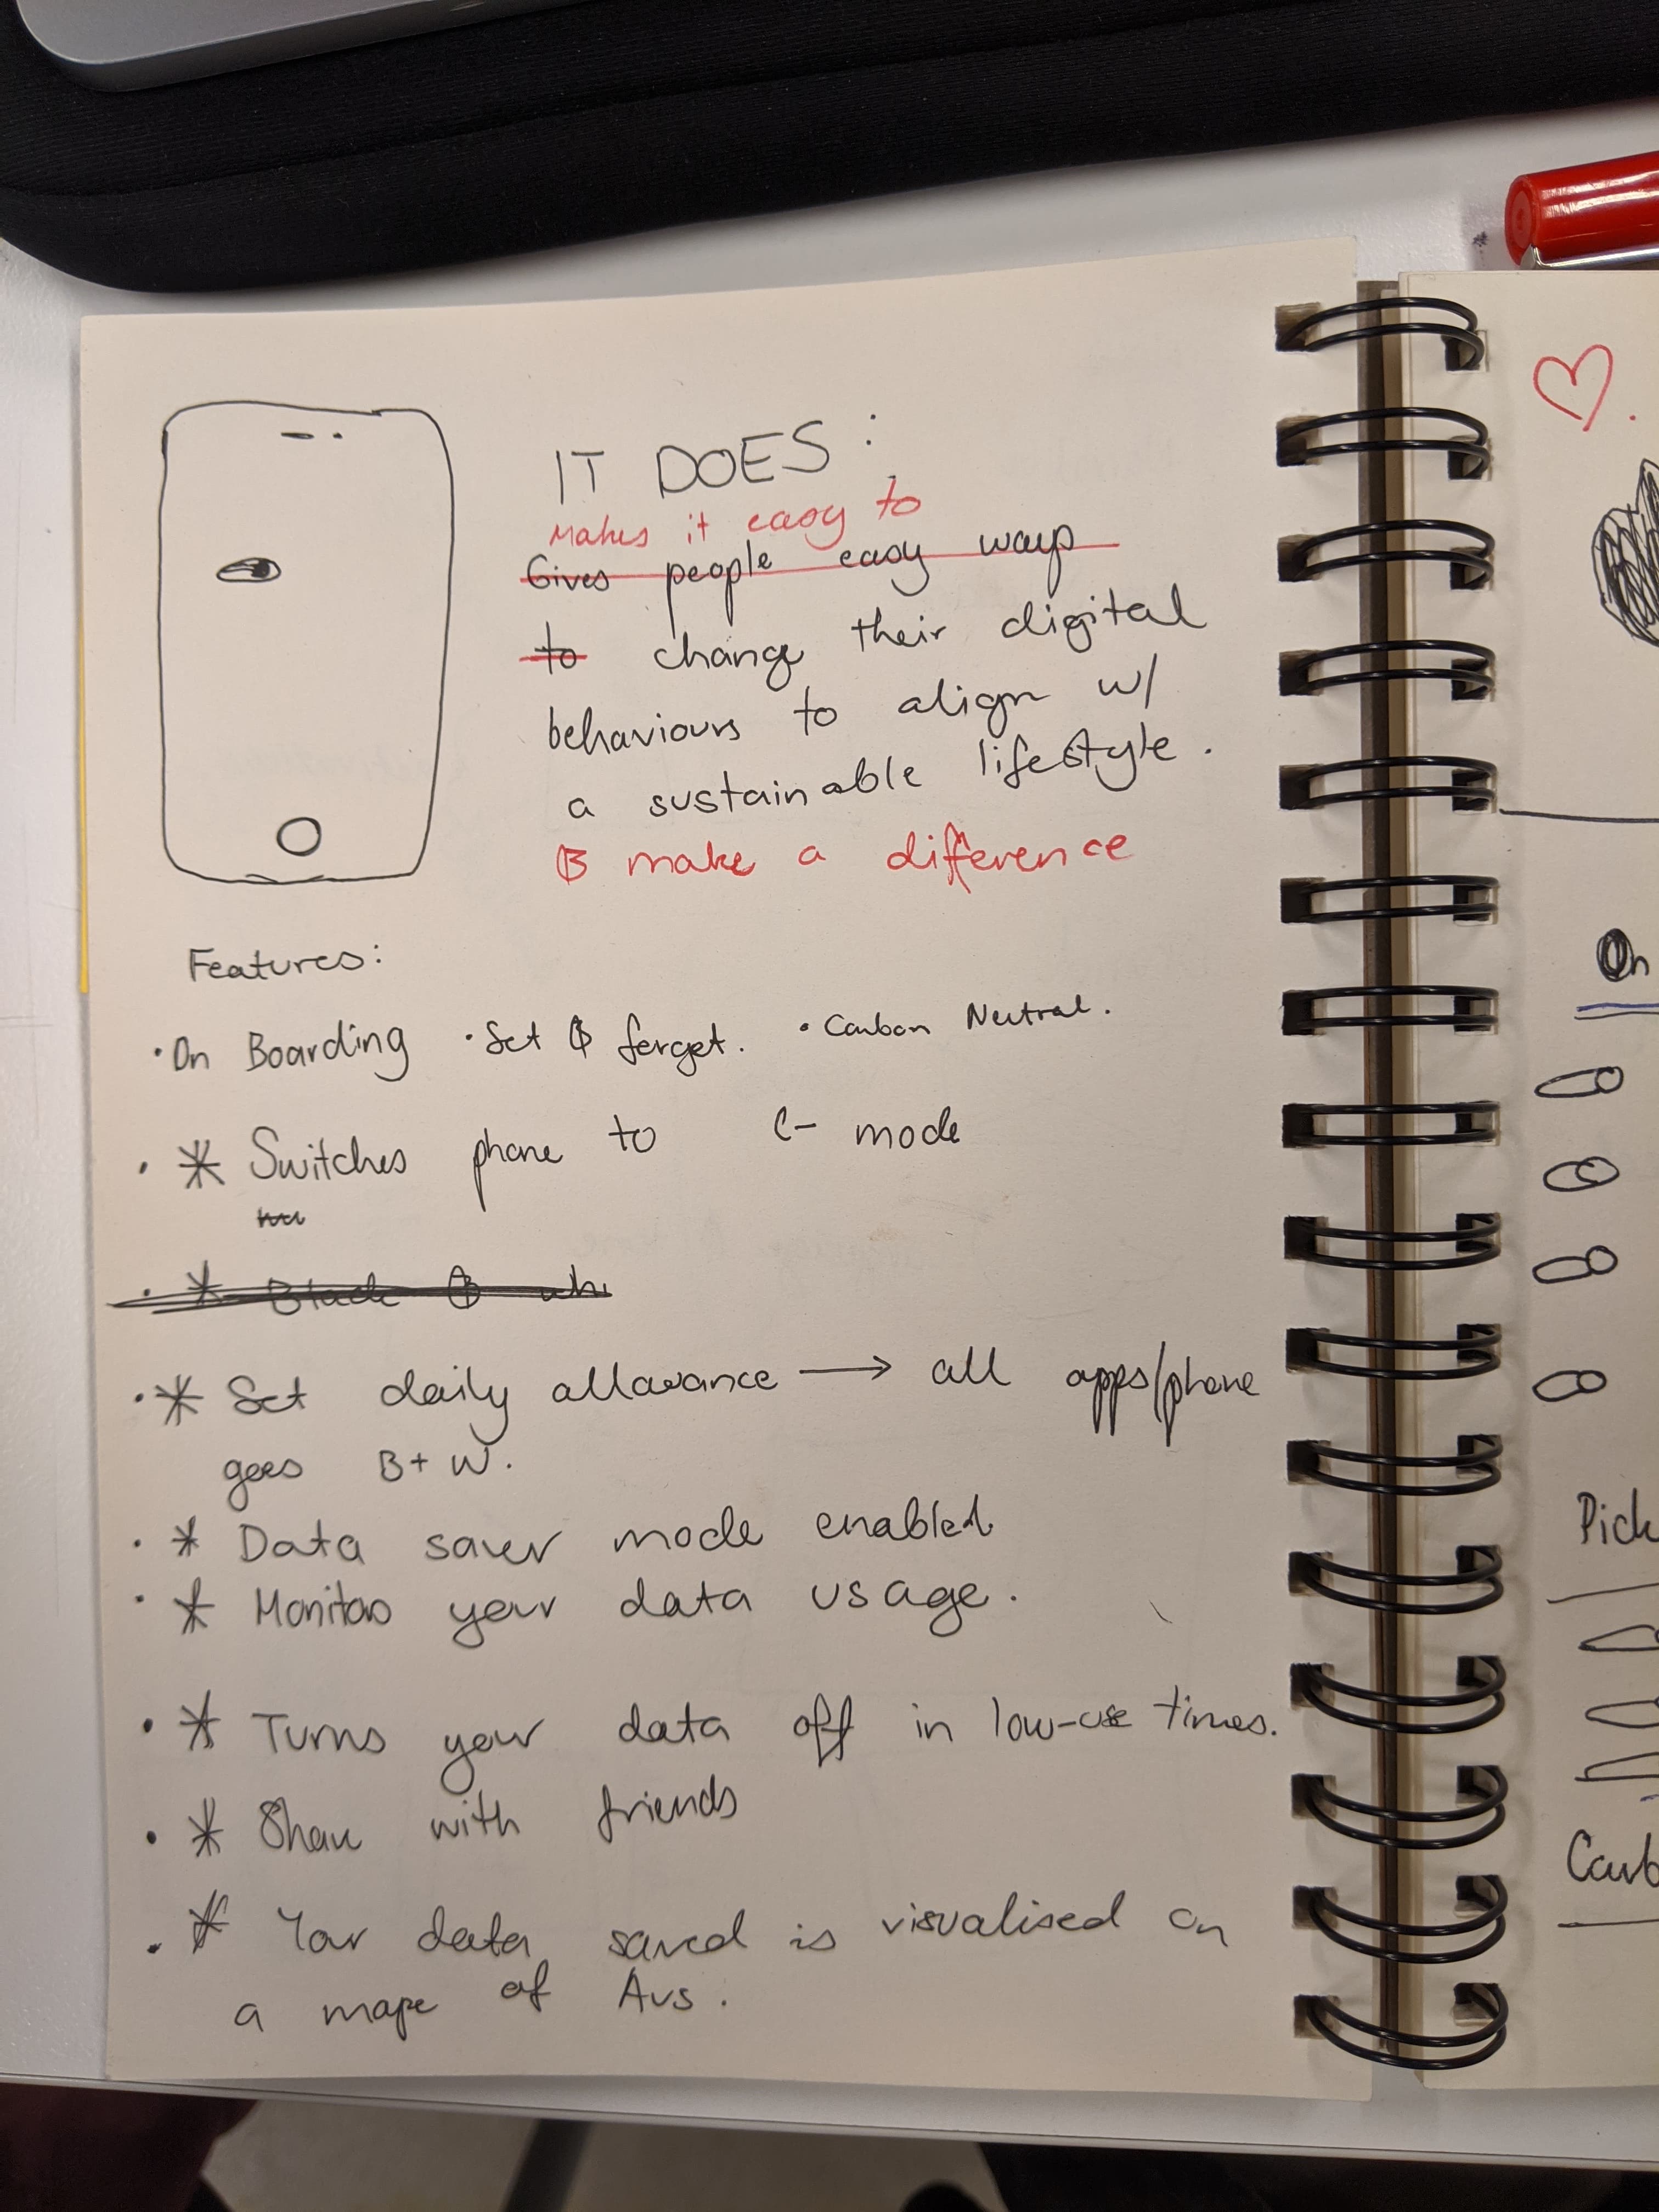 IT DOES:
Makes it easy to
Gives people easy ways
to change their digital
behaviours to align w/
a sustainable lifestyle.
& make a difference
Features:
·On Boarding ·Set & forget. ·Carbon Neutral.
· * Switches phone to C- mode
· * Black & whi
· * Set daily allowance → all apps/phone
goes B+W.
· * Data saver mode enabled.
· * Monitors your data usage.
· * Turns your data off in low-use times.
· * Share with friends
· * Your data saved is visualised on
a mape of Aus.
On
Pick
Carb